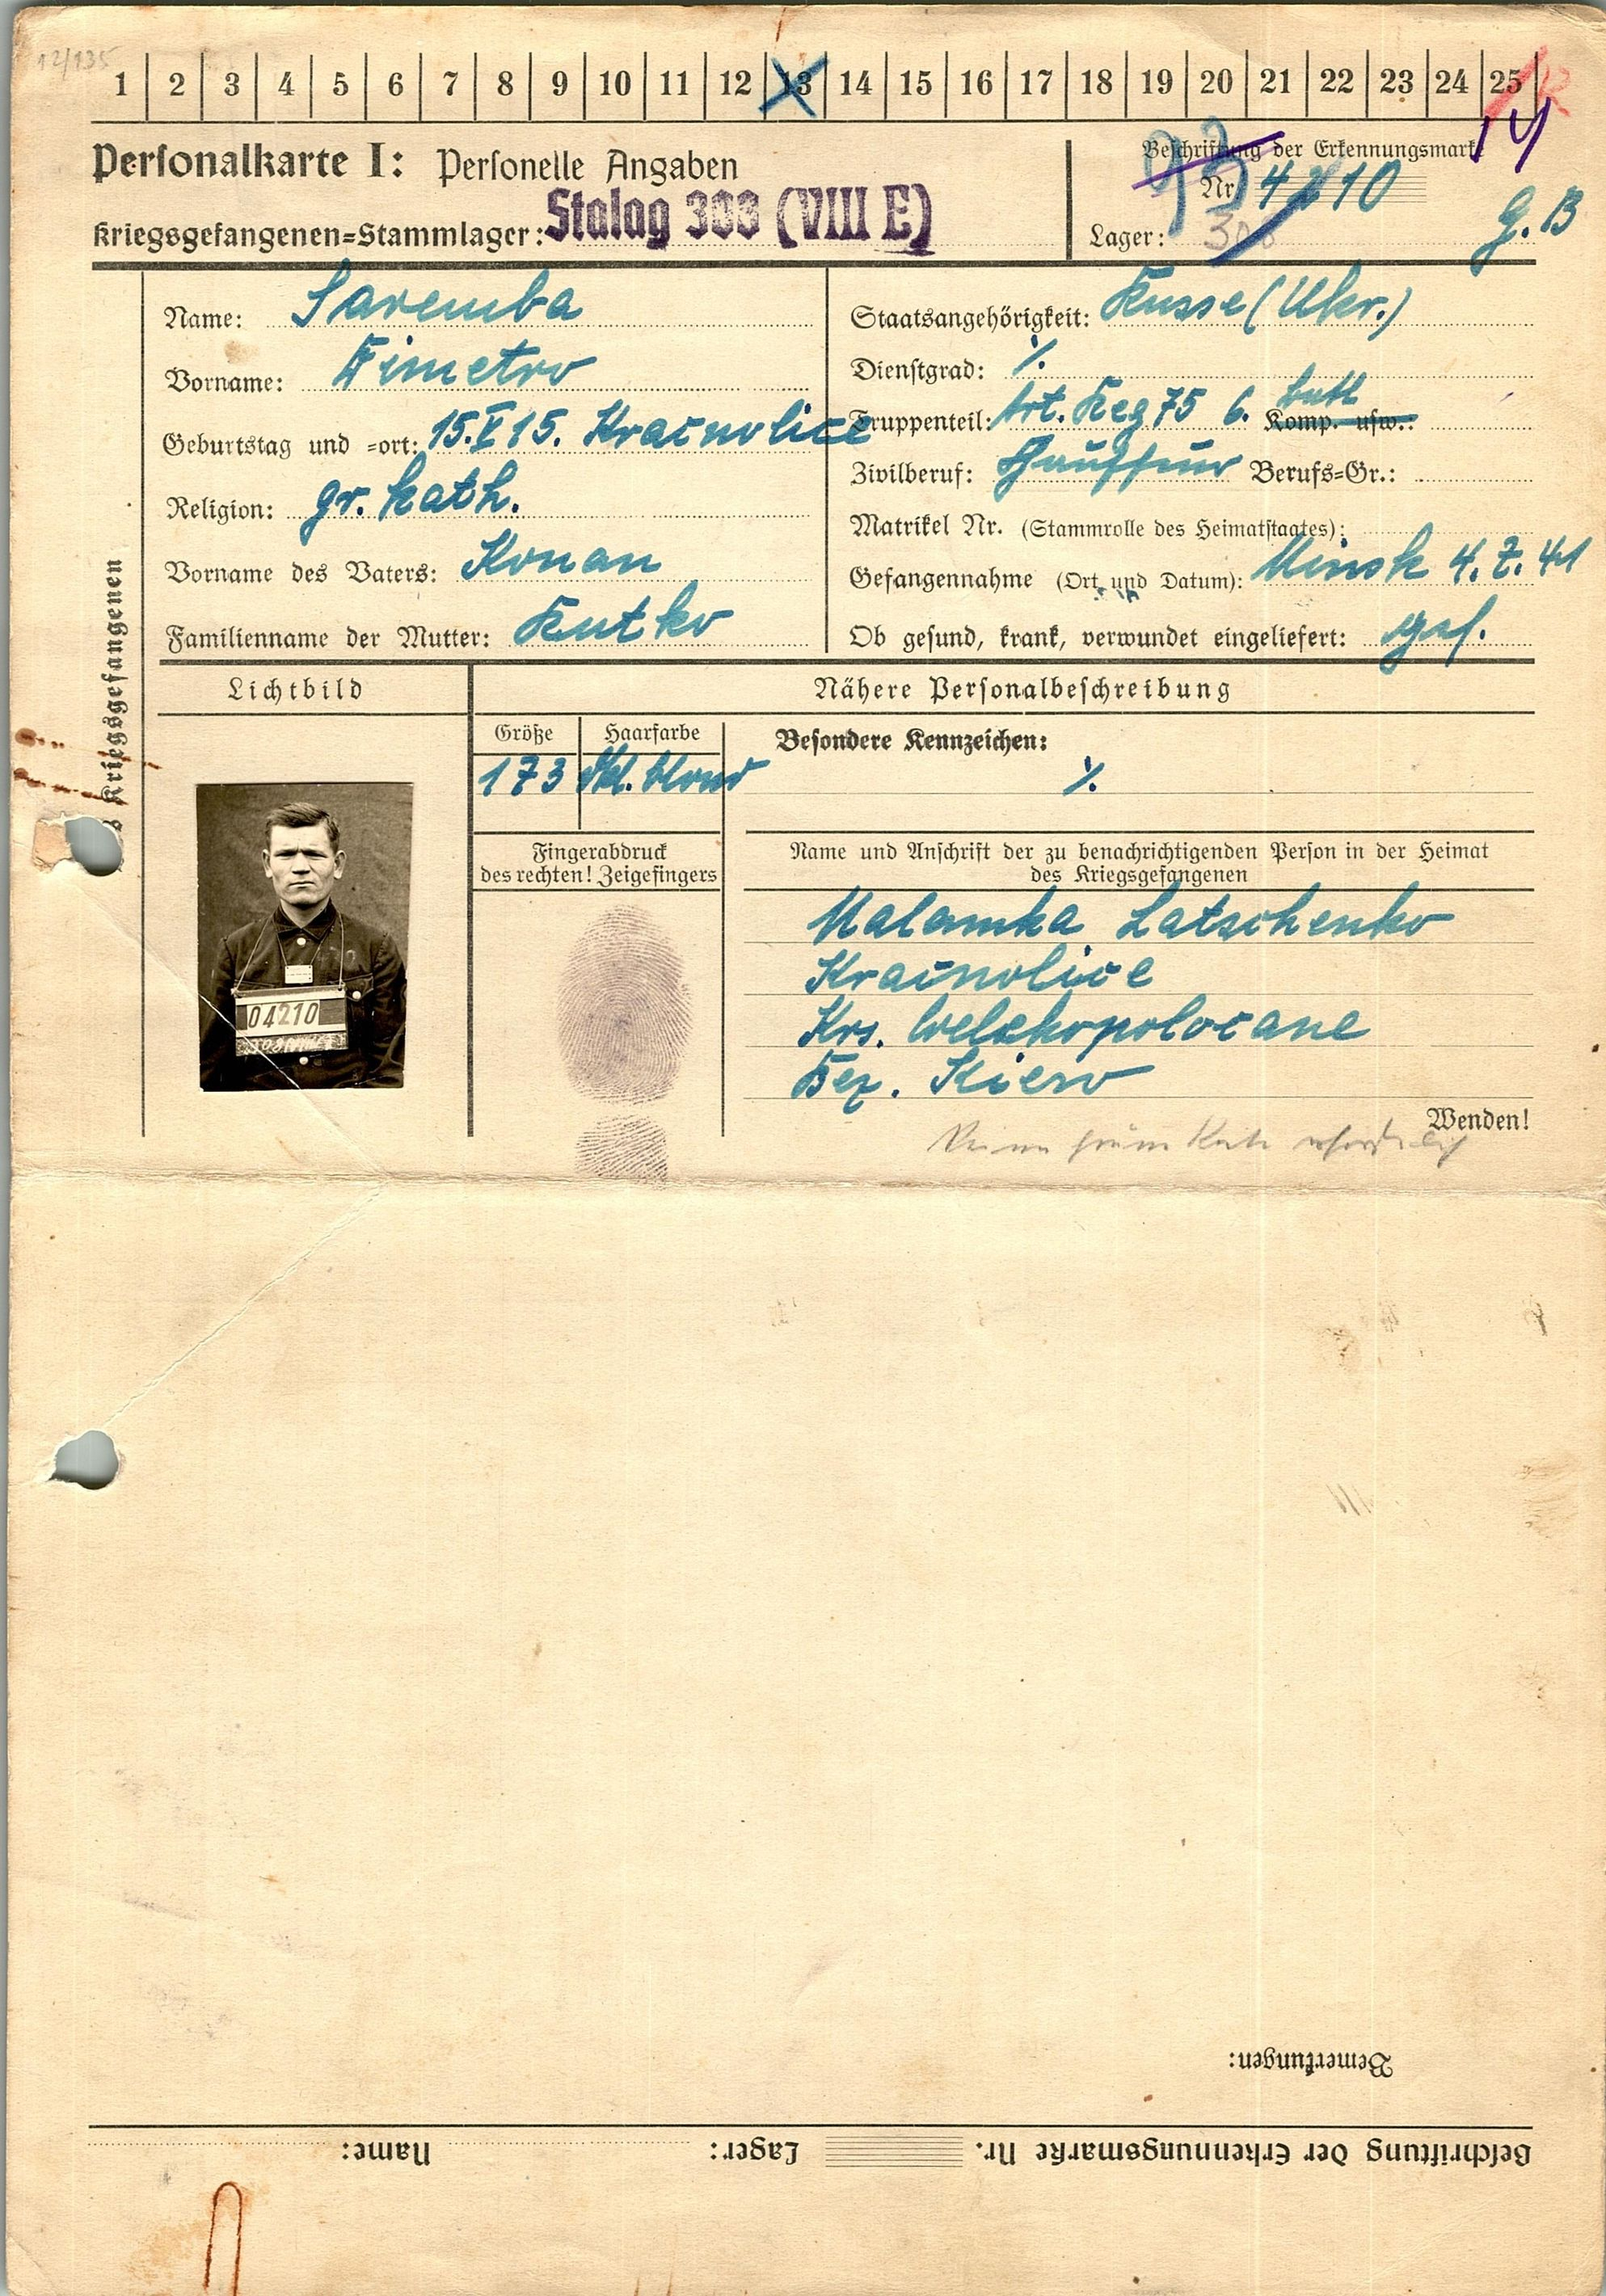 12/135
1 2 3 4 5 6 7 8 9 10 11 12 13 14 15 16 17 18 19 20 21 22 23 24 25
Personalkarte I: Personelle Angaben
Kriegsgefangenen=Stammlager: Stalag 308 (VIII E)
Beschriftung der Erkennungsmarke
Nr. 4210
Lager: 308
G.B
Name: Saremba
Vorname: Dimetro
Geburtstag und =ort: 15.V 15.
Religion: gr. kath.
Vorname des Vaters: Konan
Familienname der Mutter: Rutko
Staatsangehörigkeit: Russe (Ukr.)
Dienstgrad: ·/.
Truppenteil: Art. Reg 75 6. Komp. usw.: batt
Zivilberuf: Berufs=Gr.:
Matrikel Nr. (Stammrolle des Heimatstaates):
Gefangennahme (Ort und Datum): Minsk 4.7.41
Ob gesund, krank, verwundet eingeliefert: ges.
Kriegsgefangenen
Lichtbild
Nähere Personalbeschreibung
Größe
173
Haarfarbe
dkl. blond
Besondere Kennzeichen:
·/.
Fingerabdruck
des rechten! Zeigefingers
Name und Anschrift der zu benachrichtigenden Person in der Heimat
des Kriegsgefangenen
Malamka Latschenko
Krs.
Bez. Kiew
04210
Wenden!
Bemerkungen:
Beschriftung der Erkennungsmarke Nr. Lager: Name: